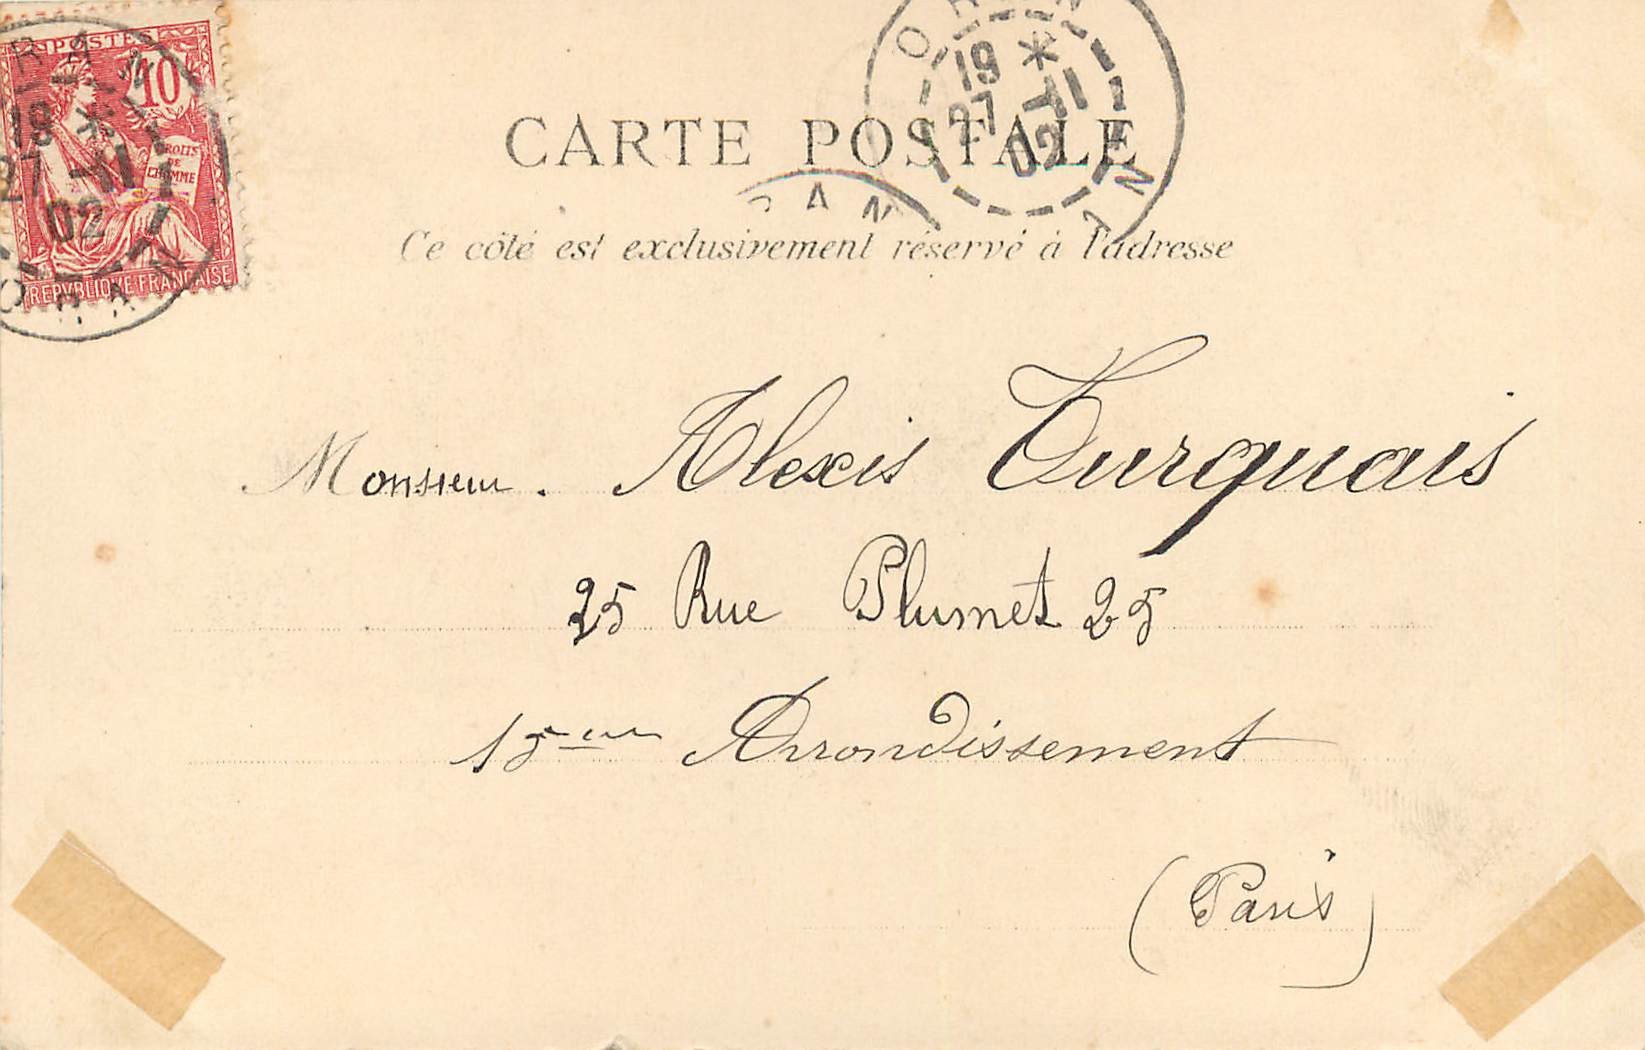 POSTES
10
DROITS
DE
L'HOMME
REPVBLIQVE FRANÇAISE
ORAN
19 *
27 -11
02
ORAN
ORAN
19 *
27 -11
02
ORAN
CARTE POSTALE
RAN
Ce côté est exclusivement réservé à l'adresse
Monsieur. Alexis Turquais
25 Rue Plumet 25
15eme Arrondissement
(Paris)